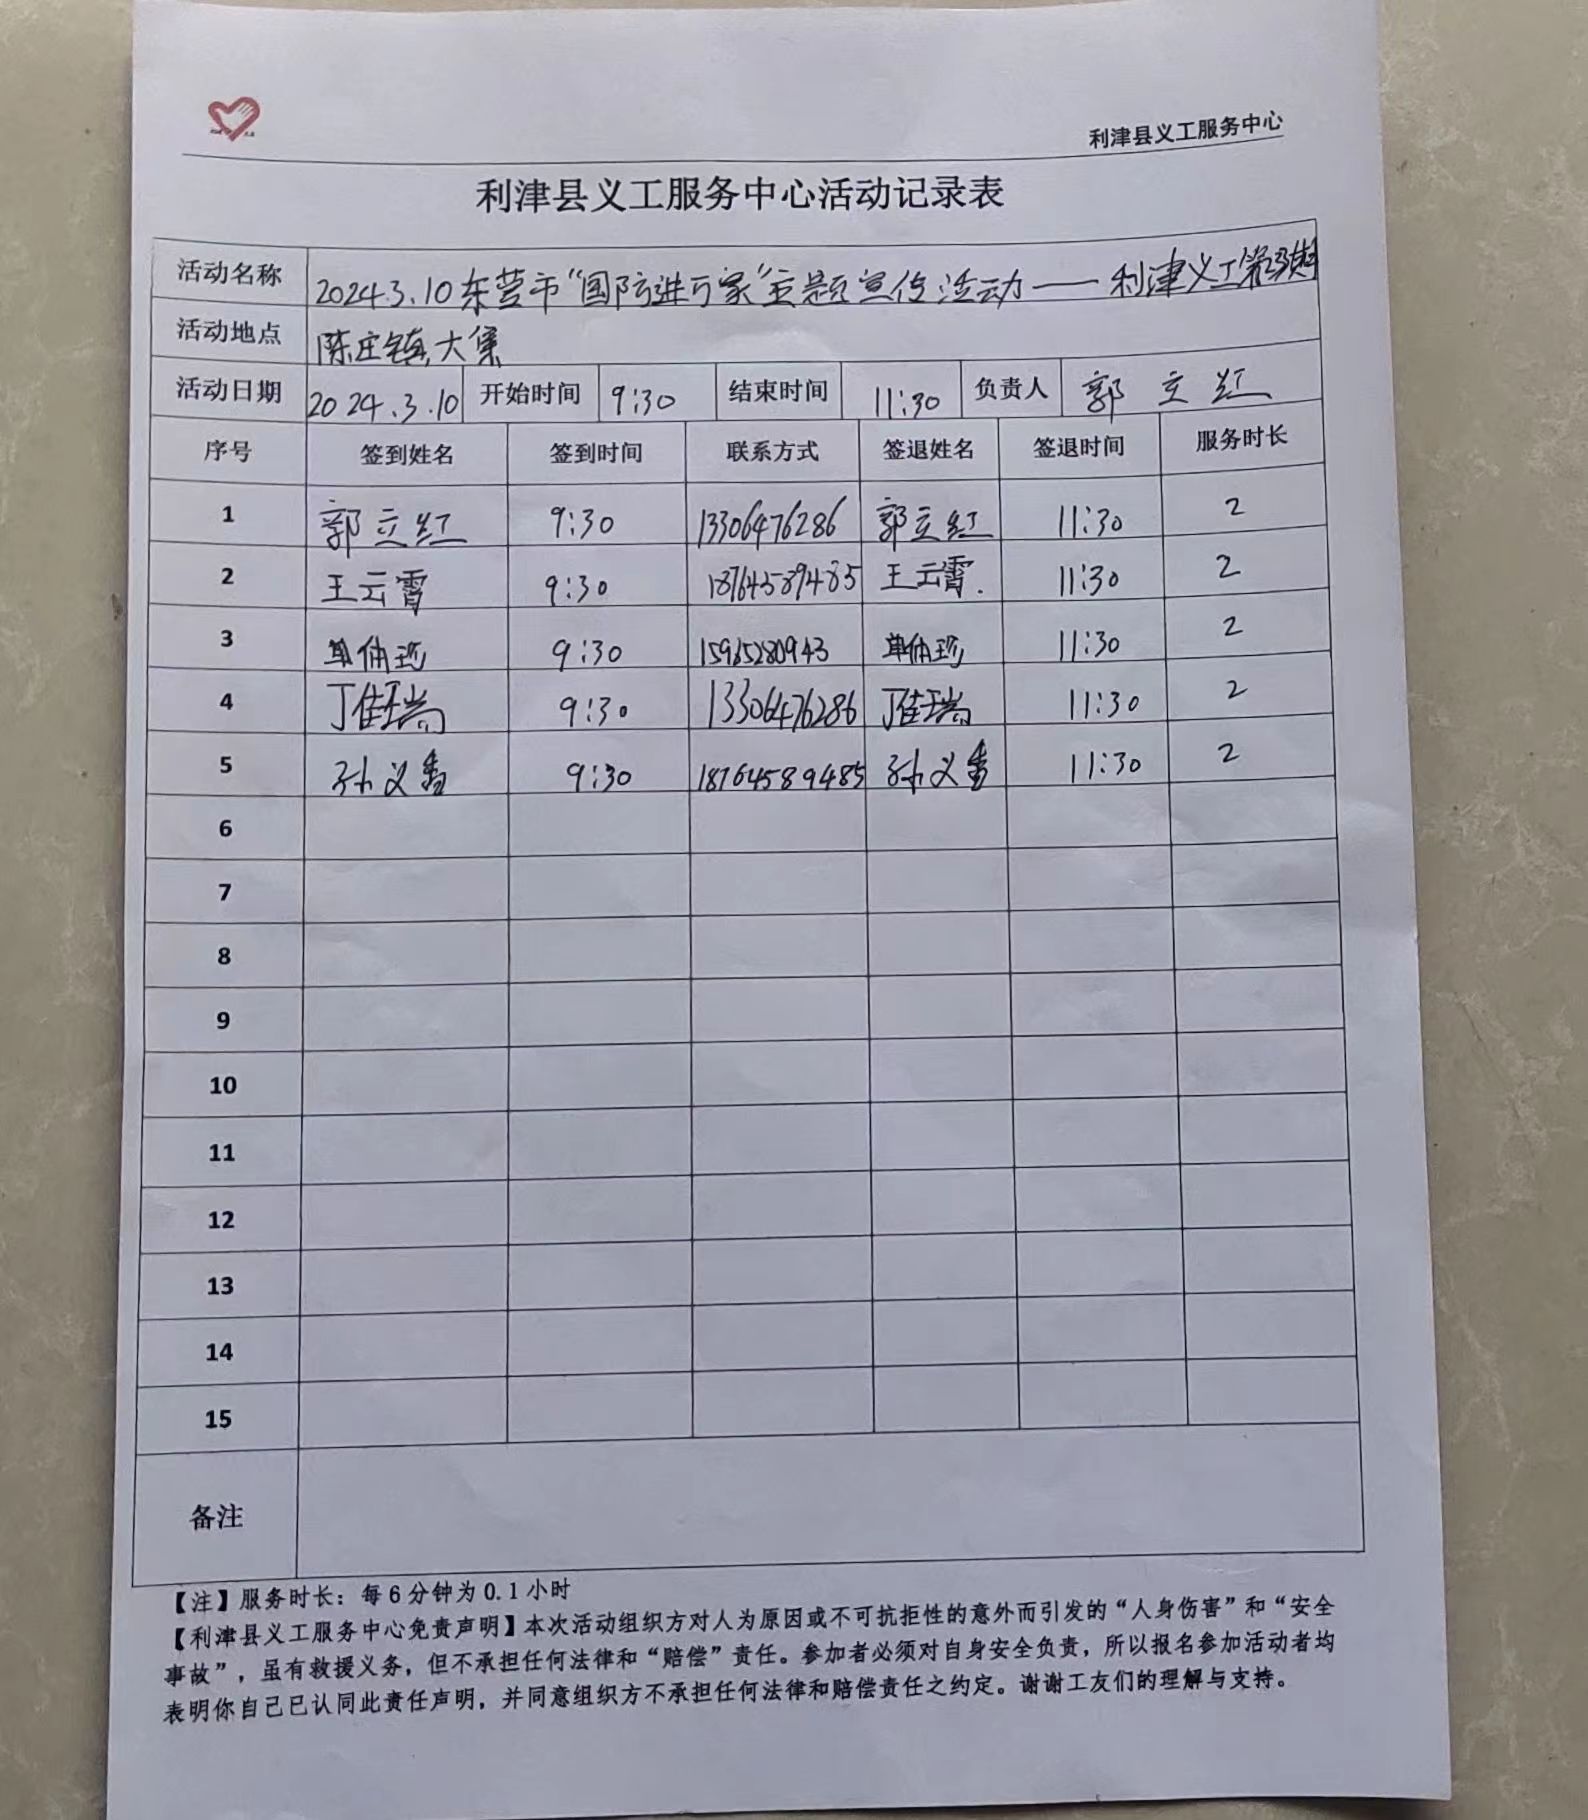 利津县义工服务中心
利津县义工服务中心活动记录表
活动名称 2024.3.10东营市“国防进万家”主题宣传活动——利津义工第
活动地点 陈庄镇大集
活动日期 2024.3.10 开始时间 9:30 结束时间 11:30 负责人 郭立红
序号 签到姓名 签到时间 联系方式 签退姓名 签退时间 服务时长
1 郭立红 9:30 13306476286 郭立红 11:30 2
2 王云霄 9:30 18764589485 王云霄. 11:30 2
3 9:30 15965280943 11:30 2
4 丁佳瑞 9:30 13306476286 丁佳瑞 11:30 2
5 孙义香 9:30 18764589485 孙义香 11:30 2
6
7
8
9
10
11
12
13
14
15
备注
【注】服务时长：每6分钟为0.1小时
【利津县义工服务中心免责声明】本次活动组织方对人为原因或不可抗拒性的意外而引发的“人身伤害”和“安全
事故”，虽有救援义务，但不承担任何法律和“赔偿”责任。参加者必须对自身安全负责，所以报名参加活动者均
表明你自己已认同此责任声明，并同意组织方不承担任何法律和赔偿责任之约定。谢谢工友们的理解与支持。